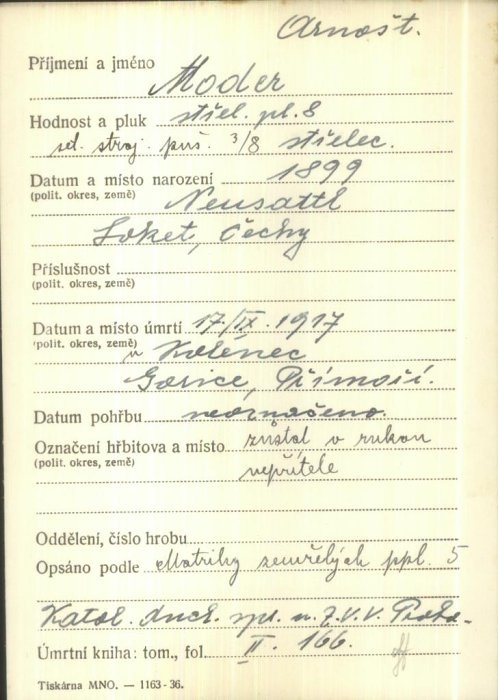 Arnošt.
Příjmení a jméno Moder
Hodnost a pluk střel. pl. 8
sd. stroj. puš. 3/8 střelec.
Datum a místo narození 1899
(polit. okres, země) Neusattl
Loket, Čechy
Příslušnost
(polit. okres, země)
Datum a místo úmrtí 17./IX. 1917
(polit. okres, země) v Kolenec
Gorice, Přímoří.
Datum pohřbu neoznačeno.
Označení hřbitova a místo zůstal v rukou
(polit. okres, země) nepřítele
Oddělení, číslo hrobu
Opsáno podle Matriky zemřelých ppl. 5
Katol. duch. spr. u Z.V.V. Praha.
Úmrtní kniha: tom., fol. II. 166.
Tiskárna MNO. — 1163-36.